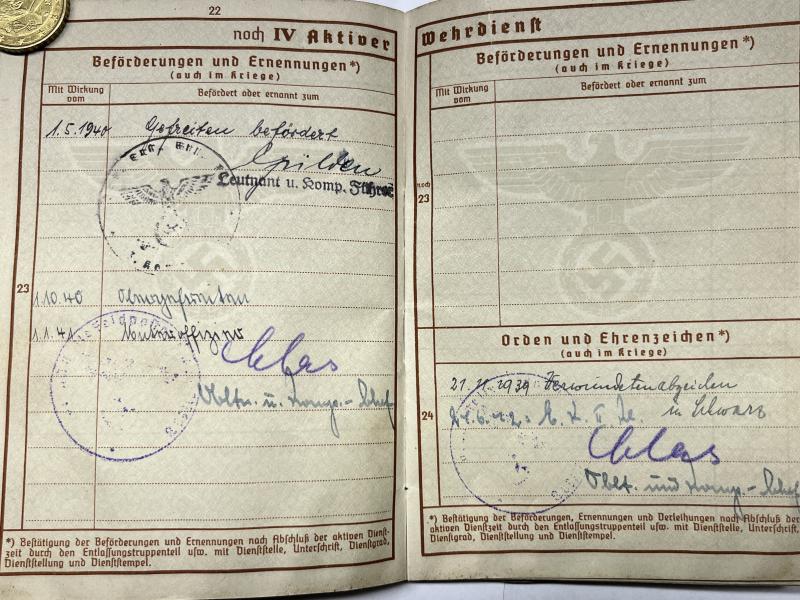 22
noch IV Aktiver
Beförderungen und Ernennungen*)
(auch im Kriege)
Mit Wirkung vom
Befördert oder ernannt zum
1.5.1940 Gefreiten befördert
Leutnant u. Komp. Führer
23
1.10.40 Obergefreiten
1.1.41 Unteroffizier
Obltn. u. Komp.-Chef
*) Bestätigung der Beförderungen und Ernennungen nach Abschluß der aktiven Dienst-
zeit durch den Entlassungstruppenteil usw. mit Dienststelle, Unterschrift, Dienstgrad,
Dienststellung und Dienststempel.
Wehrdienst
Beförderungen und Ernennungen*)
(auch im Kriege)
Mit Wirkung vom
Befördert oder ernannt zum
noch
23
Orden und Ehrenzeichen*)
(auch im Kriege)
21.11.1939 Verwundetenabzeichen
in Schwarz
24
Oblt. und Komp.-Chef
*) Bestätigung der Beförderungen, Ernennungen und Verleihungen nach Abschluß der
aktiven Dienstzeit durch den Entlassungstruppenteil usw. mit Dienststelle, Unterschrift,
Dienstgrad, Dienststellung und Dienststempel.